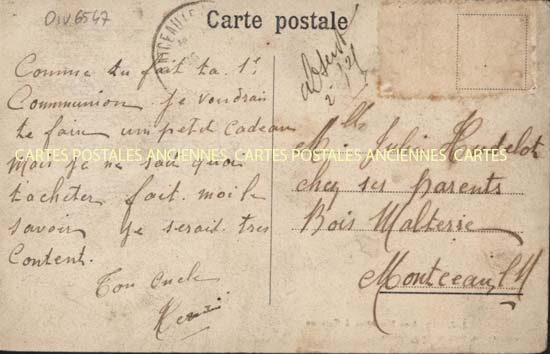 Div6547
Carte postale
absent
Comme tu fait ta 1e
Communion je voudrais
te faire un petit cadeau
Mais je ne sait quoi
t'acheter fait moi le
savoir je serait tres
Content.
Ton oncle
Henri
Mlle
chez ses parents
Bois Malterre
Montceau l M
CARTES POSTALES ANCIENNES CARTES POSTALES ANCIENNES CARTES